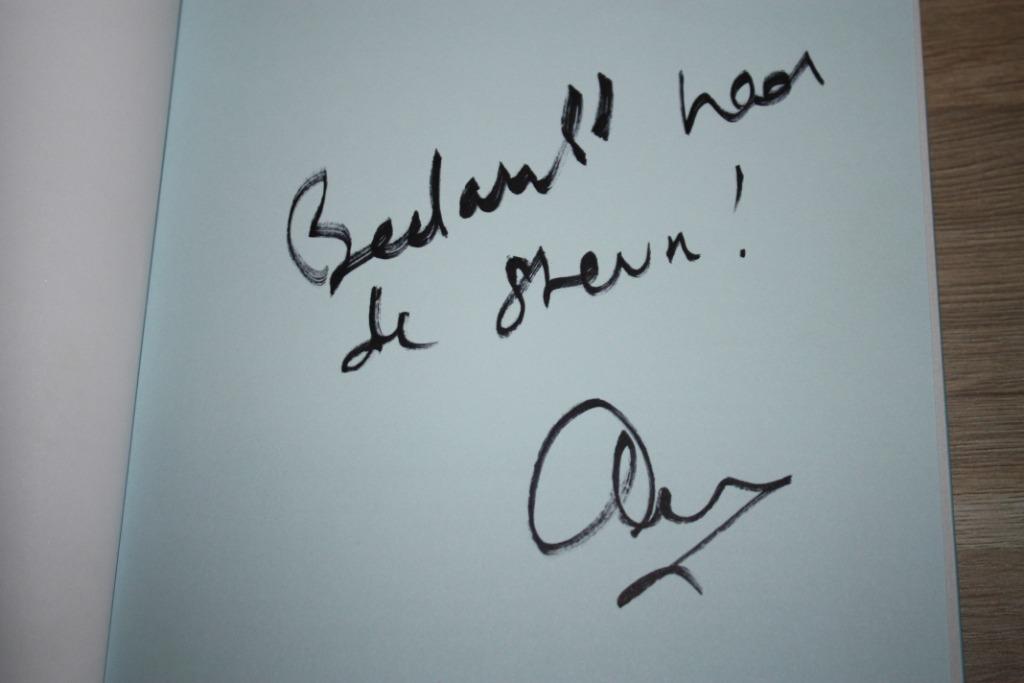 Bedankt voor
de steun!